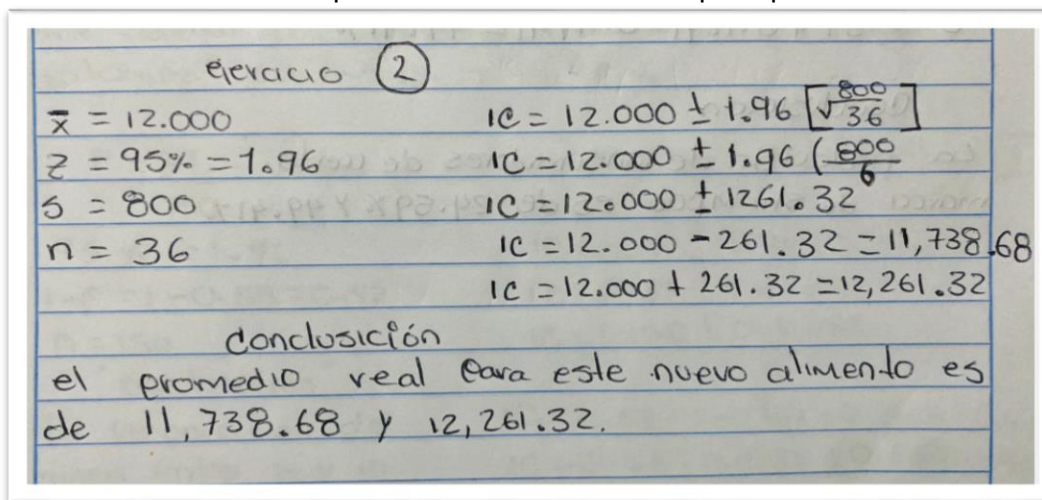 ejercicio 2
x̄ = 12.000
z = 95% = 1.96
s = 800
n = 36
IC = 12.000 ± 1.96 [√800/36]
IC = 12.000 ± 1.96 (800/6
IC = 12.000 ± 1261.32
IC = 12.000 - 261.32 = 11,738.68
IC = 12.000 + 261.32 = 12,261.32
Conclusición
el promedio real para este nuevo alimento es
de 11,738.68 y 12,261.32.